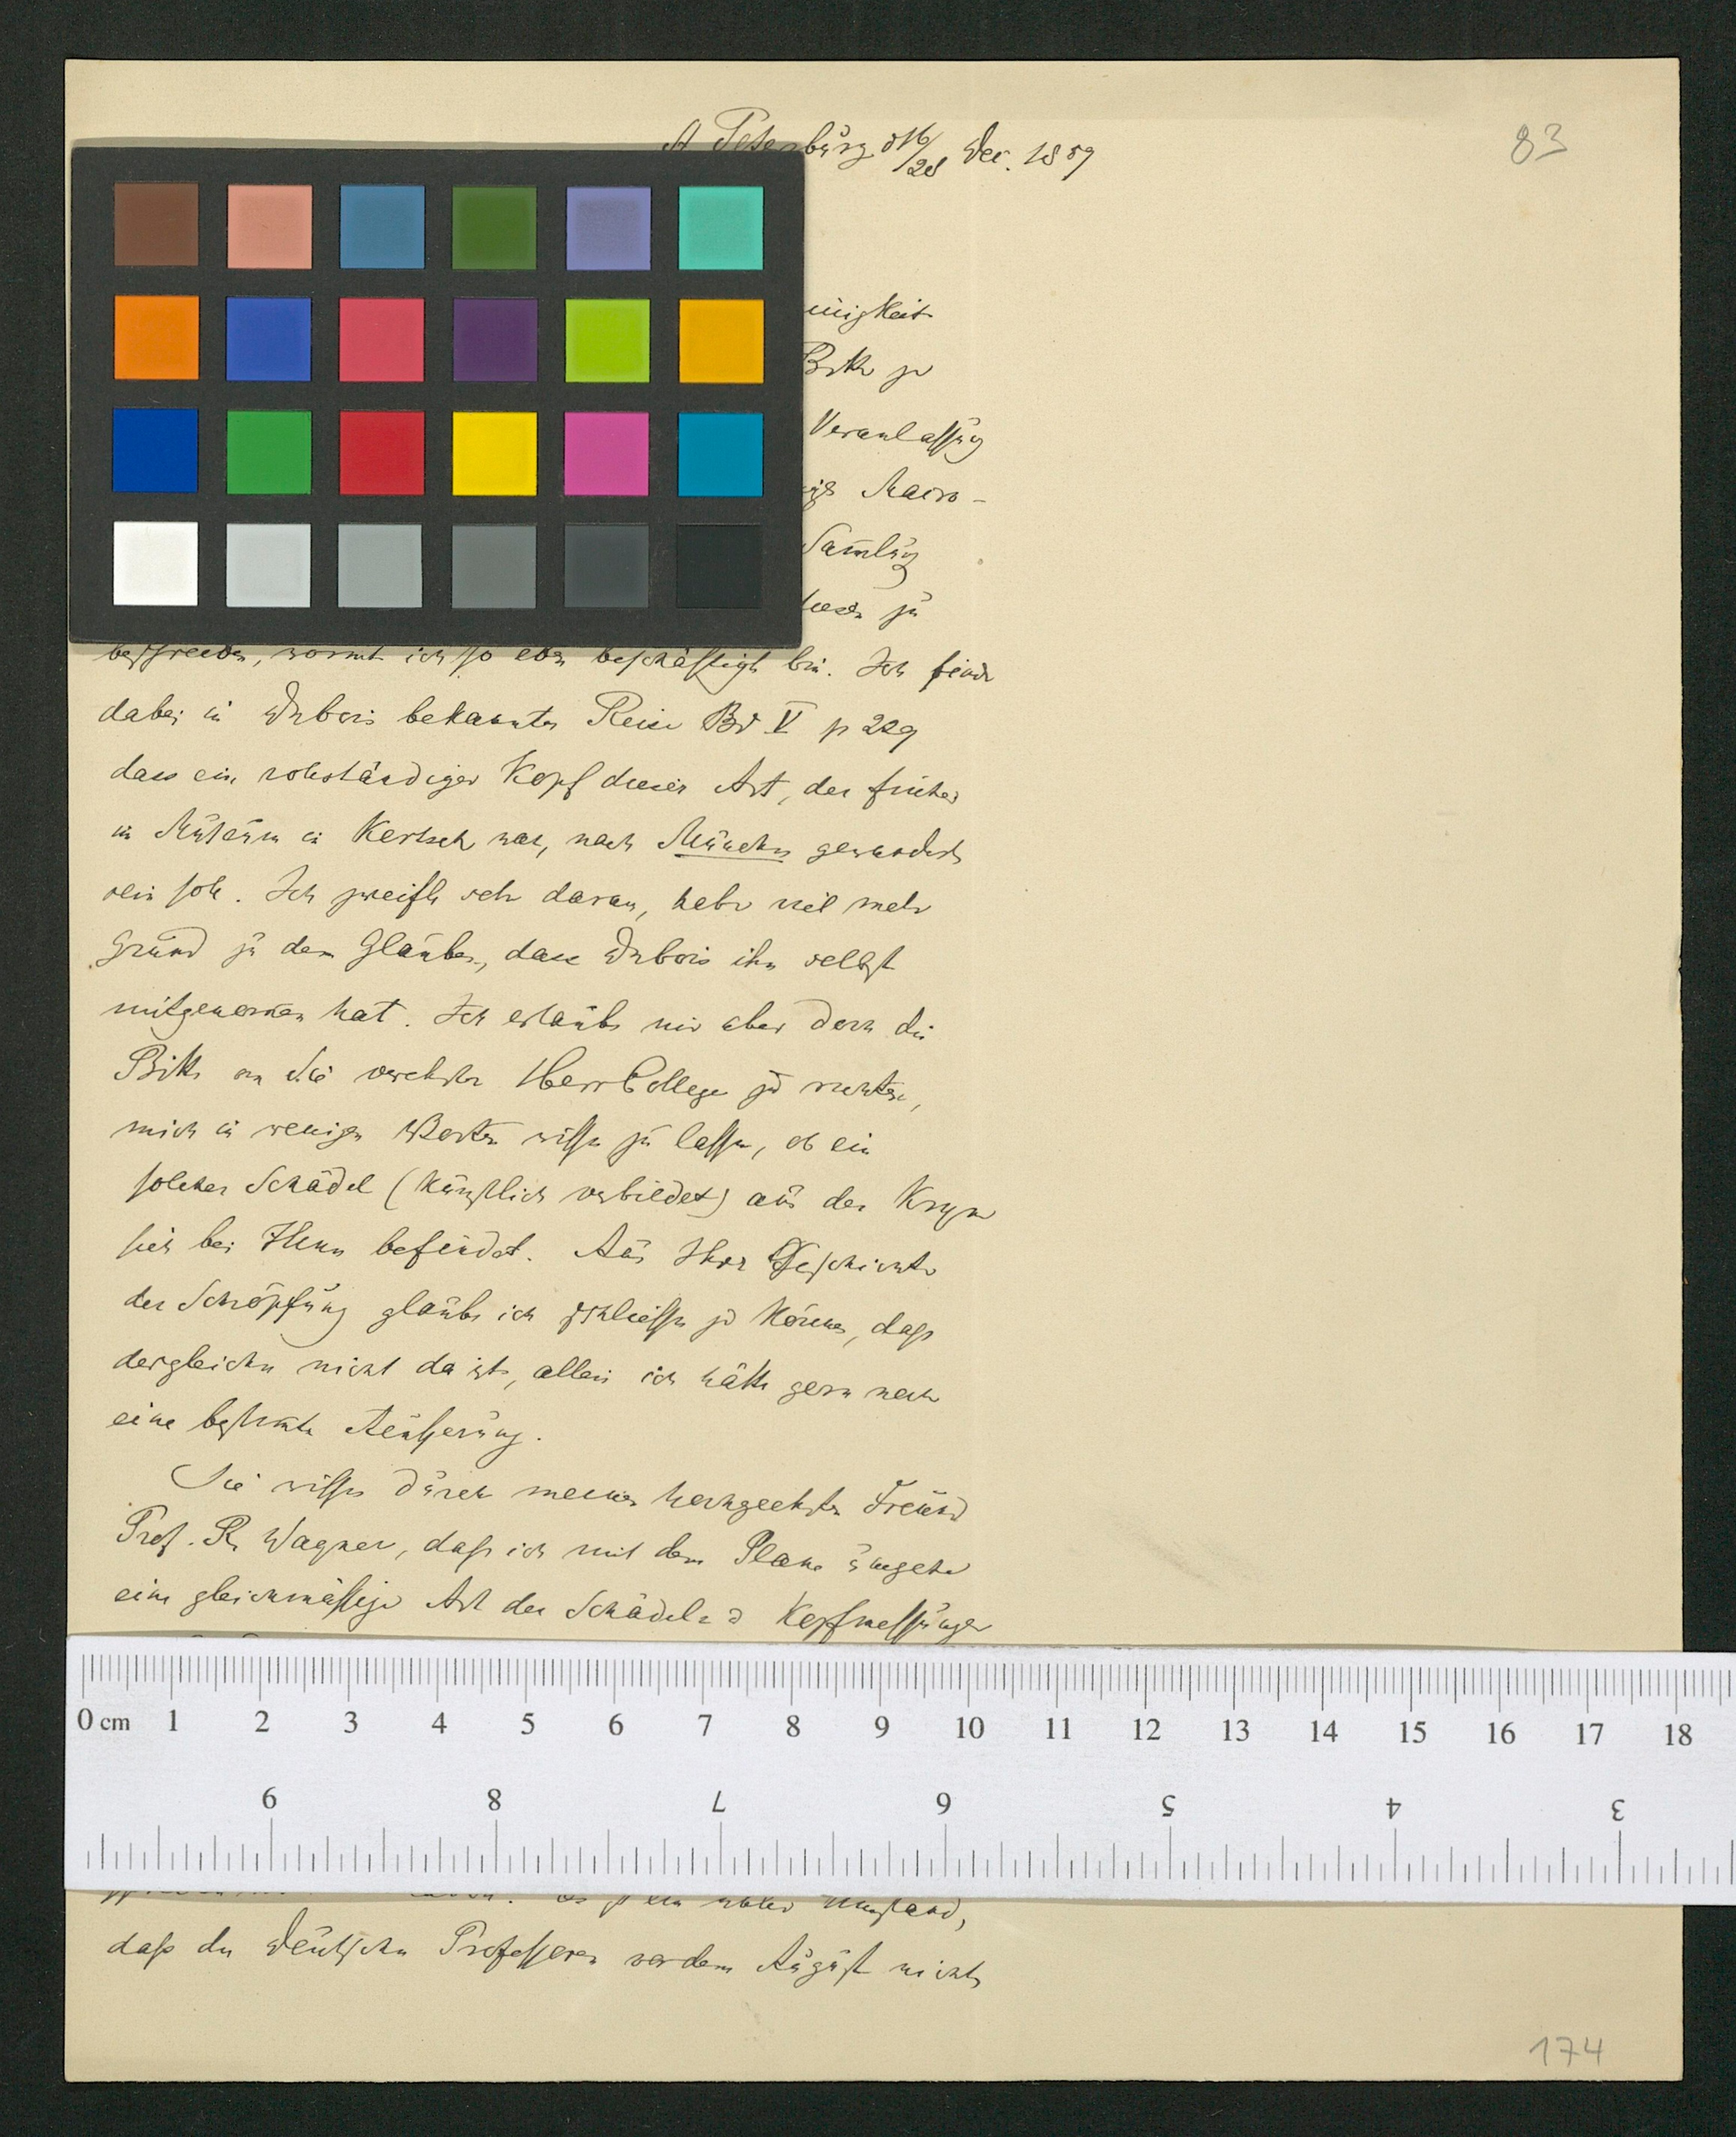 St Petersburg d 16/28 Dec. 1859
83
Bitte zu
Veranlassung
Macro-
Sam̄lung
diesen zu
beschreiben, womit ich so eben beschäftigt bin. Ich finde
dabei in Dubois bekannter Reise Bd V p 229
dass ein vollständiger Kopf dieser Art, der früher
im Museum in Kertsch war, nach München gewandert
sein soll. Ich zweifle sehr daran, habe viel mehr
Grund zu dem Glauben, dass Dubois ihn selbst
mitgenom̄en hat. Ich erlaube mir aber doch die
Bitte an Sie verehrter Herr College zu richten,
mich in wenigen Worten wissen zu lassen, ob ein
solcher Schädel (künstlich verbildet) aus der Krym
sich bei Ihnen befindet. Aus Ihrer Geschichte
der Schöpfung glaube ich schliessen zu können, dass
dergleichen nicht da ist, allein ich hätte gern noch
eine bestim̄te Aeusserung.
Sie wissen durch meinen hochgeehrten Freund
Prof. R. Wagner, dass ich mit dem Plane umgehe
eine gleichmässige Art der Schädel u Kopfmessungen
0 cm 1 2 3 4 5 6 7 8 9 10 11 12 13 14 15 16 17 18
9 8 7 6 5 4 3
Es ist ein übler Umstand,
dass die Deutschen Professoren vor dem August nicht
174